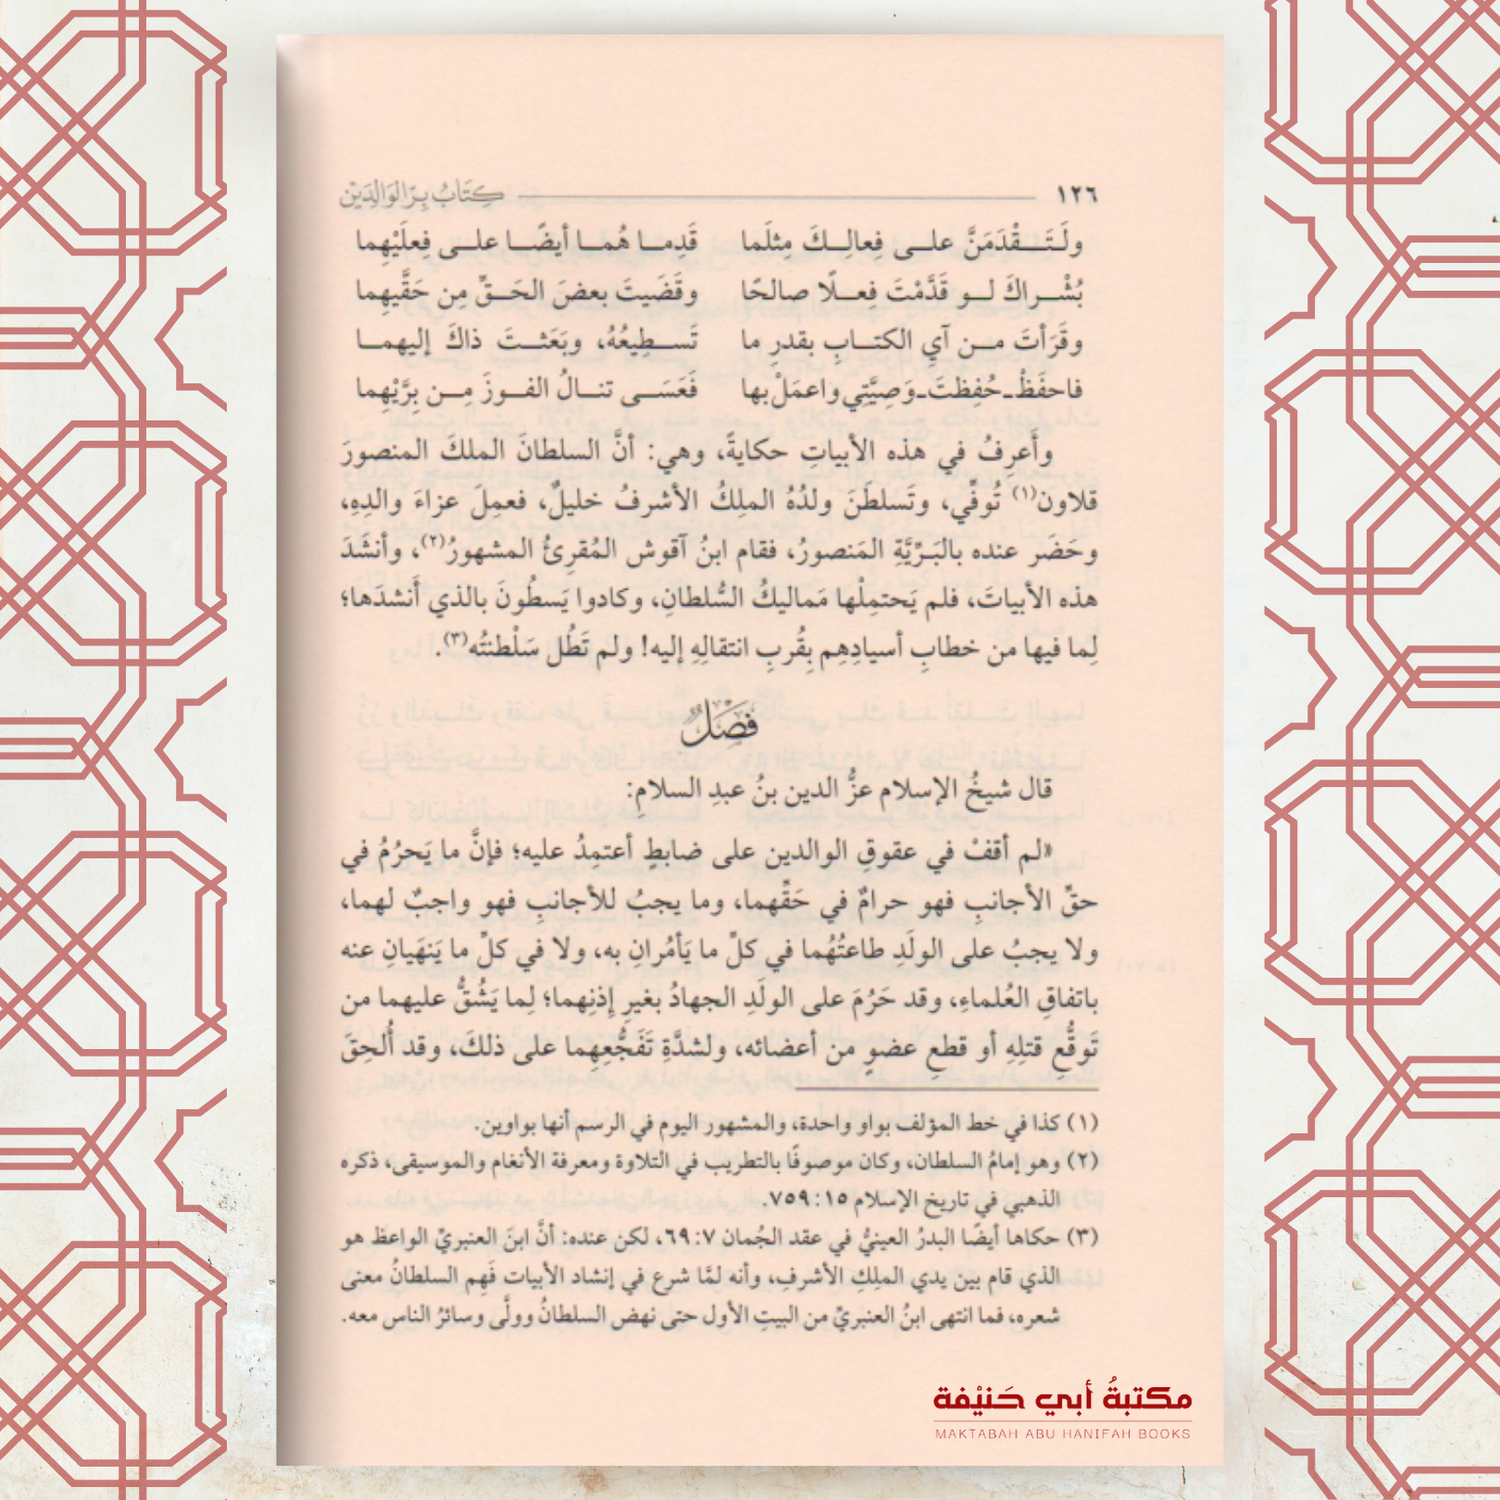 ١٢٦ كِتَابُ بِرِّ الوَالِدَيْن
ولَـتَـــقْدَمَنَّ علــى فِعالِــكَ مِثلَما قَدِمــا هُمــا أيضًــا علــى فِعلَيْهِما
بُشْــراكَ لــو قَدَّمْتَ فِعــلًا صالحًا وقَضَيتَ بعضَ الحَــقِّ مِن حَقَّيهِما
وقَرَأتَ مــن آيِ الكتــابِ بقدرِ ما تَســطِيعُهُ، وبَعَثــتَ ذاكَ إليهمــا
فاحفَظْ ـ حُفِظتَ ـ وَصِيَّتِي واعمَلْ بها فَعَسَــى تنــالُ الفــوزَ مِــن بِرَّيْهِما
وأَعرِفُ في هذه الأبياتِ حكايةً، وهي: أنَّ السلطانَ الملكَ المنصورَ
قلاون(١) تُوفِّي، وتَسلطَنَ ولدُهُ الملِكُ الأشرفُ خليلٌ، فعمِلَ عزاءَ والدِهِ،
وحَضَر عنده بالبَرِّيَّةِ المَنصورُ، فقام ابنُ آقوش المُقرِئُ المشهورُ(٢)، وأنشَدَ
هذه الأبياتَ، فلم يَحتمِلْها مَماليكُ السُّلطانِ، وكادوا يَسطُونَ بالذي أَنشدَها؛
لِما فيها من خطابِ أسيادِهِم بِقُربِ انتقالِهِ إليه! ولم تَطُل سَلْطنتُه(٣).
فَصْلٌ
قال شيخُ الإسلام عزُّ الدين بنُ عبدِ السلامِ:
«لم أقفْ في عقوقِ الوالدين على ضابطٍ أعتمِدُ عليه؛ فإنَّ ما يَحرُمُ في
حقِّ الأجانبِ فهو حرامٌ في حَقِّهما، وما يجبُ للأجانبِ فهو واجبٌ لهما،
ولا يجبُ على الولَدِ طاعتُهُما في كلِّ ما يَأمُرانِ به، ولا في كلِّ ما يَنهَيانِ عنه
باتفاقِ العُلماءِ، وقد حَرُمَ على الولَدِ الجهادُ بغيرِ إذنِهما؛ لِما يَشُقُّ عليهما من
تَوقُّعِ قتلِهِ أو قطعِ عضوٍ من أعضائه، ولشدَّةِ تَفَجُّعِهِما على ذلكَ، وقد أُلحِقَ
(١) كذا في خط المؤلف بواو واحدة، والمشهور اليوم في الرسم أنها بواوين.
(٢) وهو إمامُ السلطان، وكان موصوفًا بالتطريب في التلاوة ومعرفة الأنغام والموسيقى، ذكره
الذهبي في تاريخ الإسلام ١٥:٧٥٩.
(٣) حكاها أيضًا البدرُ العينيُّ في عقد الجُمان ٧:٦٩، لكن عنده: أنَّ ابنَ العنبريِّ الواعظ هو
الذي قام بين يدي الملِكِ الأشرفِ، وأنه لمَّا شرع في إنشاد الأبيات فَهِم السلطانُ معنى
شعره، فما انتهى ابنُ العنبريِّ من البيتِ الأول حتى نهض السلطانُ وولَّى وسائرُ الناس معه.
مكتبةُ أبي حَنيْفة
MAKTABAH ABU HANIFAH BOOKS